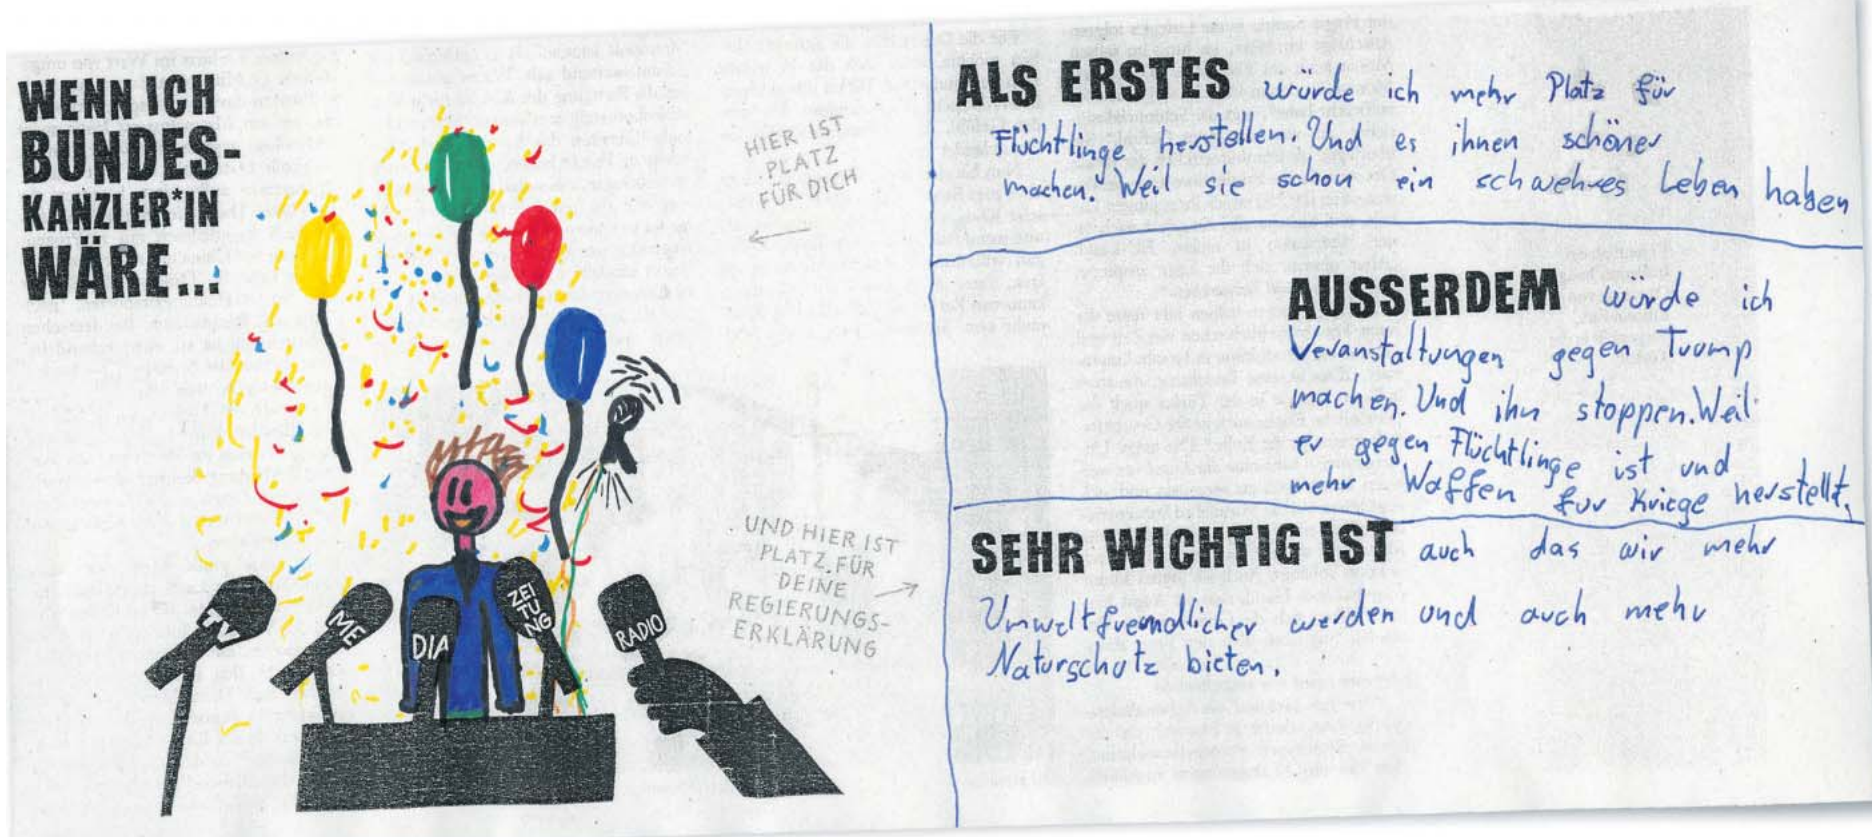 WENN ICH
BUNDES-
KANZLER*IN
WÄRE...
HIER IST
PLATZ
FÜR DICH
TV
ME
DIA
ZEI
TU
NG
RADIO
UND HIER IST
PLATZ FÜR
DEINE
REGIERUNGS-
ERKLÄRUNG
ALS ERSTES würde ich mehr Platz für
Flüchtlinge herstellen. Und es ihnen schöner
machen. Weil sie schon ein schwehres Leben haben
AUSSERDEM würde ich
Veranstaltungen gegen Trump
machen. Und ihn stoppen. Weil
er gegen Flüchtlinge ist und
mehr Waffen für Kriege herstellt.
SEHR WICHTIG IST auch das wir mehr
Umweltfreundlicher werden und auch mehr
Naturschutz bieten.